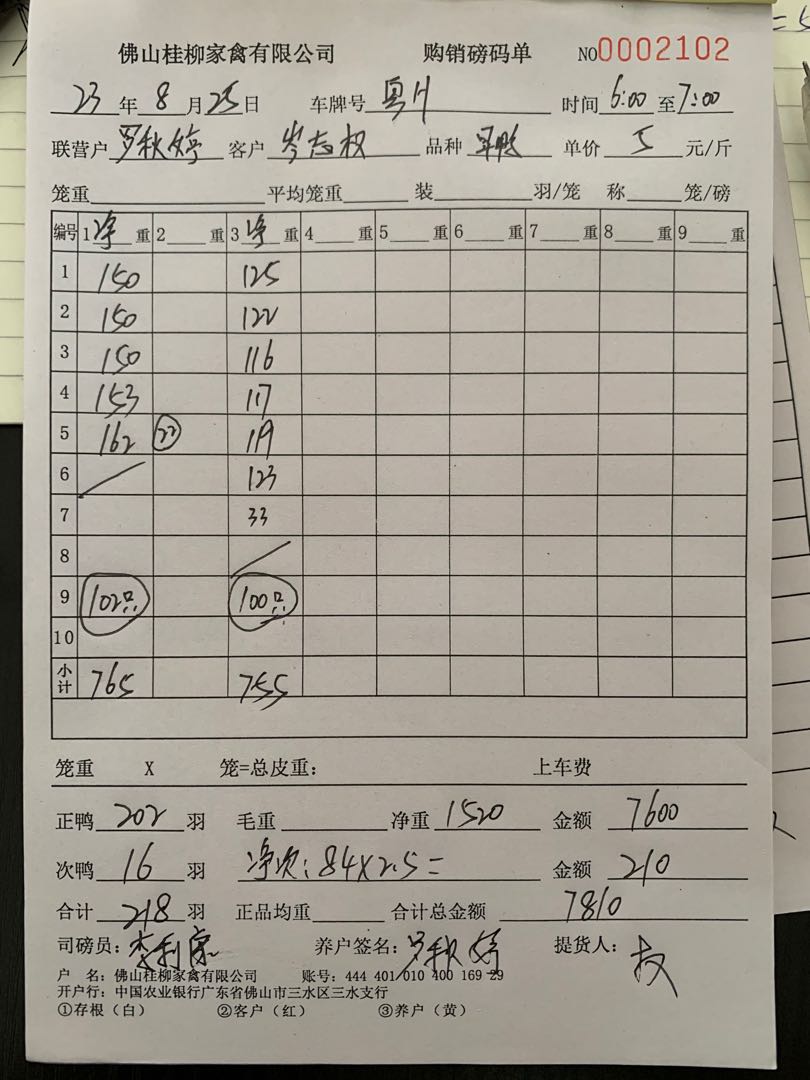 佛山桂柳家禽有限公司 购销磅码单 NO0002102
23年8月25日 车牌号 粤 时间6:00至7:00
联营户 罗秋婷 客户 岑志权 品种 单价 5 元/斤
笼重 平均笼重 装 羽/笼 称 笼/磅
编号 1净重 2 重 3净重 4 重 5 重 6 重 7 重 8 重 9 重
1 150 125
2 150 122
3 150 116
4 153 117
5 162 22 119
6 123
7 33
8
9 102只 100只
10
小计 765 755
笼重 X 笼=总皮重: 上车费
正鸭 202 羽 毛重 净重 1520 金额 7600
次鸭 16 羽 净次:84×2.5= 金额 210
合计 218 羽 正品均重 合计总金额 7810
司磅员: 养户签名:罗秋婷 提货人: 权
户 名:佛山桂柳家禽有限公司 账号:444 401 010 400 169 29
开户行:中国农业银行广东省佛山市三水区三水支行
①存根(白) ②客户(红) ③养户(黄)